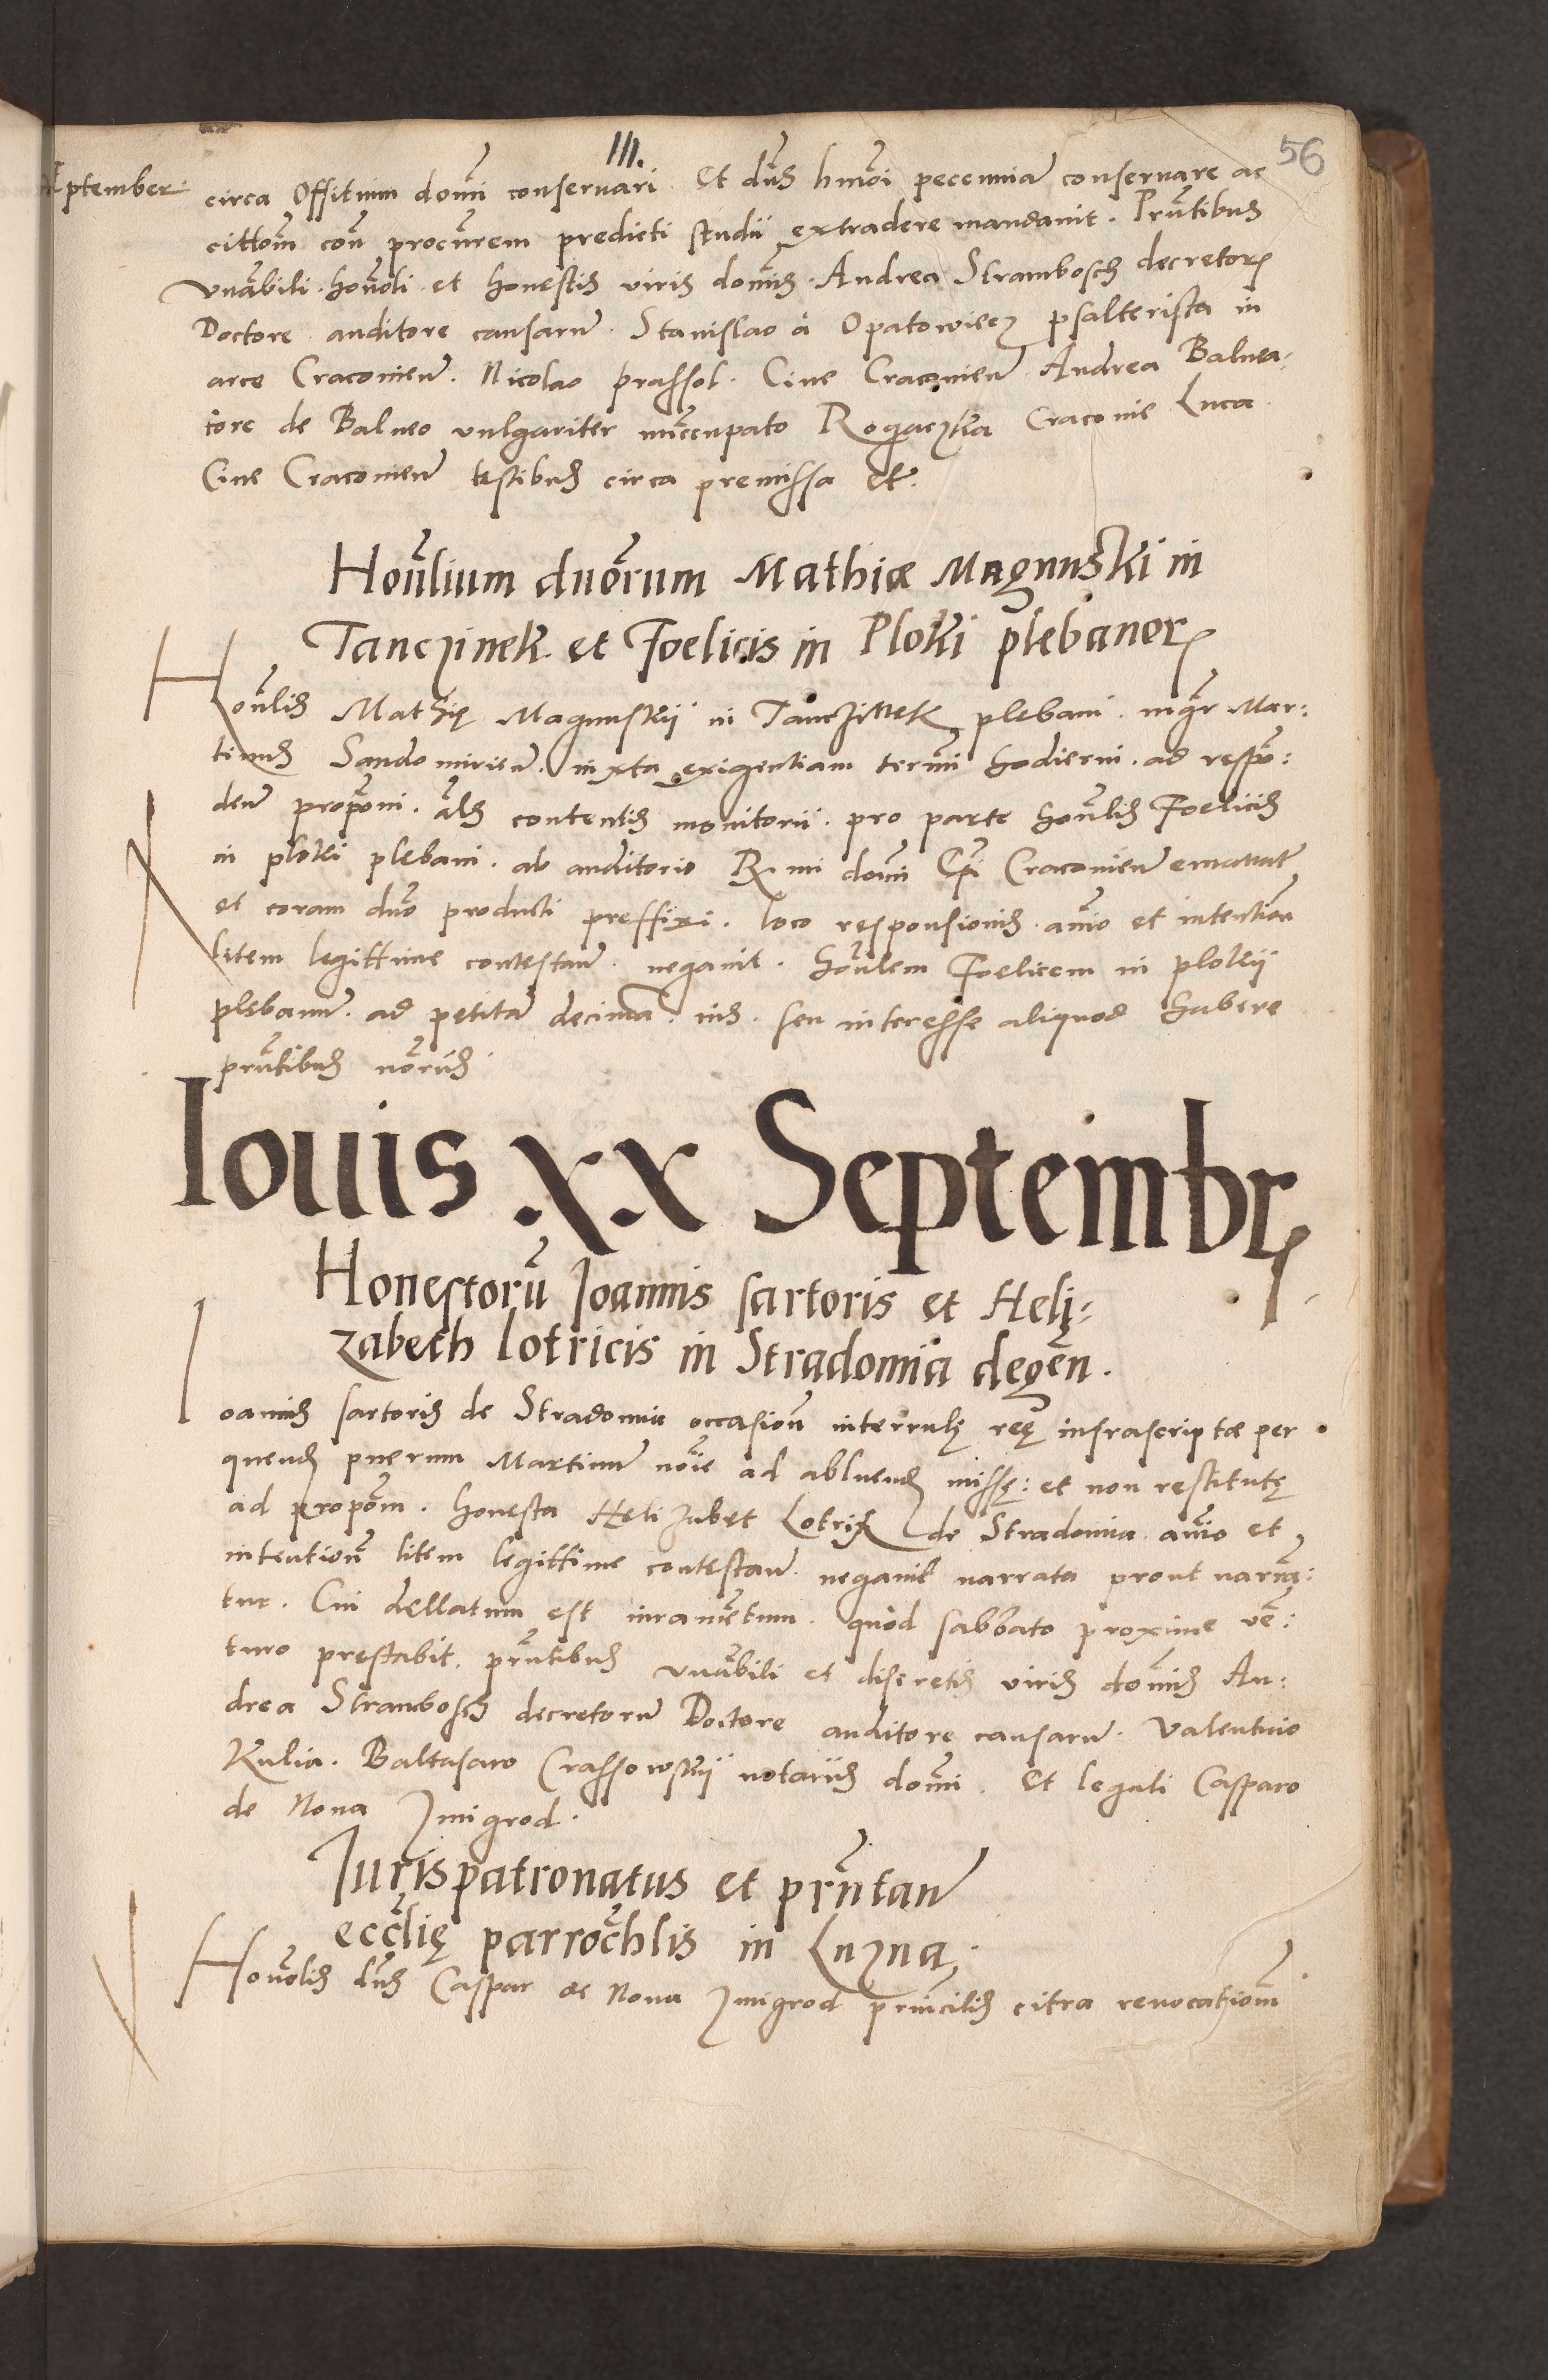 III.
56
eptember
circa Offitium domi conseruari Et dns hmoi pecuniam conseruare ac
cittom con procurem predicti studii extradere mandauit. Prntibus
vnabili. honoli et honestis viris domis. Andrea Strambosch decretor
Doctore auditore causaru. Stanislao à Opatowiecz psalterista in
arce Cracouien. Nicolao prassol. Ciue Cracouien Andrea Balnea-
tore de Balneo vulgariter nuccupato Rogaczka Cracouie Luca
Ciue Cracouien testibus circa premissa Et.
Honlium duorum Mathiæ Magnuski in
Tanczinek et Foelicis in Ploki plebanor
Honlis Mathię Magnuskij in Tanczinek plebani. mgr Mar:
tinus Sandomirien. iuxta exigentiam termi hodierni. ad respo:
den proponi. als contentis monitorii. pro parte honlis Foelicis
in ploki plebani. ab auditorio R mi domi Epi Cracouien emanat
et coram duo producti preffixi. loco responsionis animo et intention
litem legittime contestan. negauit. honlem Foelicem in plokij
plebanum. ad petitam decimam. ius. seu interesse aliquod habere
prntibus norus
Iouis XX Septembr
Honestorū Ioannis sartoris et Helį=
zabeth lotricis in Stradomia degen.
Ioannis sartoris de Stradomia occasion interrulę reę infrascriptæ per
quend puerum Martinum noie ad abluend missę: et non restitutę
ad propom. honesta Helizabet Lotrix de Stradomia animo et
intention litem legittime contestan. negauit narrata prout narrat:
tur. Cui dellatum est iuramentum. quod sabbato proxime ve:
turo prestabit. prntibus vnabili et discretis viris domis An:
drea Strambosch decretorum Doctore auditore causaru. Valentino
Kulia. Baltasaro Crassowskij notariis domi. Et legali Casparo
de Noua Zmigrod.
Iurispatronatus et prntan
ecclię parrochlis in Luzna.
Honolis dns Caspar de Noua Zmigrod princilis citra reuocationm